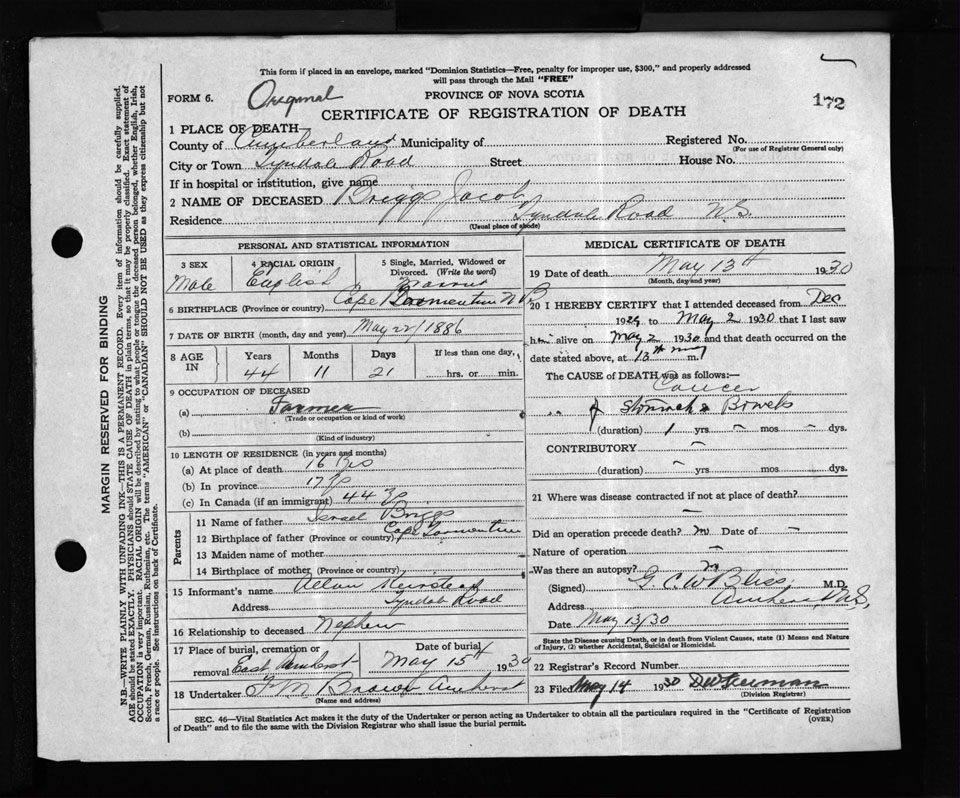 This form if placed in an envelope, marked "Dominion Statistics—Free, penalty for improper use, $300," and properly addressed
will pass through the Mail "FREE"
FORM 6. Original PROVINCE OF NOVA SCOTIA
CERTIFICATE OF REGISTRATION OF DEATH 172
1 PLACE OF DEATH—
County of Cumberland Municipality of Registered No.
(For use of Registrar General only)
City or Town Tyndale Road Street House No.
If in hospital or institution, give name
2 NAME OF DECEASED Briggs Jacob
Residence Tyndale Road N.S.
(Usual place of abode)
PERSONAL AND STATISTICAL INFORMATION
3 SEX 4 RACIAL ORIGIN 5 Single, Married, Widowed or
Divorced. (Write the word)
Male English
6 BIRTHPLACE (Province or country) Cape Tormentine N B
7 DATE OF BIRTH (month, day and year) May 22/1886
8 AGE IN Years Months Days If less than one day,
44 11 21 hrs. or min.
9 OCCUPATION OF DECEASED
(a) Farmer
(Trade or occupation or kind of work)
(b)
(Kind of industry)
10 LENGTH OF RESIDENCE (in years and months)
(a) At place of death 16
(b) In province 17
(c) In Canada (if an immigrant) 44
Parents
11 Name of father Israel Briggs
12 Birthplace of father (Province or country) Cape Tormentine
13 Maiden name of mother
14 Birthplace of mother (Province or country)
15 Informant's name Allan
Address Tyndale Road
16 Relationship to deceased Nephew
17 Place of burial, cremation or Date of burial
removal East Amherst May 15th 1930
18 Undertaker F M Brown Amherst
(Name and address)
MEDICAL CERTIFICATE OF DEATH
19 Date of death May 13th 1930
(Month, day and year)
20 I HEREBY CERTIFY that I attended deceased from Dec
1929 to May 2 1930 that I last saw
him alive on May 2 1930 and that death occurred on the
date stated above, at 13th May m.
The CAUSE of DEATH was as follows:—
Cancer
" " of Stomach & Bowels
(duration) 1 yrs — mos — dys.
CONTRIBUTORY —
(duration) — yrs. mos. dys.
21 Where was disease contracted if not at place of death?
—
Did an operation precede death? no Date of —
Nature of operation —
Was there an autopsy? no
(Signed) G. C. W. Bliss M.D.
Address Amherst, N.S.
Date May 13/30
State the Disease causing Death, or in death from Violent Causes, state (1) Means and Nature
of Injury, (2) whether Accidental, Suicidal or Homicidal.
22 Registrar's Record Number
23 Filed May 14 1930
(Division Registrar)
SEC. 46—Vital Statistics Act makes it the duty of the Undertaker or person acting as Undertaker to obtain all the particulars required in the "Certificate of Registration
of Death" and to file the same with the Division Registrar who shall issue the burial permit. (OVER)
MARGIN RESERVED FOR BINDING
N.B.—WRITE PLAINLY WITH UNFADING INK—THIS IS A PERMANENT RECORD. Every item of information should be carefully supplied.
AGE should be stated EXACTLY. PHYSICIANS should STATE CAUSE OF DEATH in plain terms, so that it may be properly classified. Exact statement of
OCCUPATION is very important. RACIAL ORIGIN will be described by stating to what people or tongue the deceased person belonged, whether English, Irish,
Scotch, French, German, Russian, Ruthenian, etc. The terms "AMERICAN" or "CANADIAN" SHOULD NOT BE USED as they express citizenship but not
a race or people. See instructions on back of Certificate.